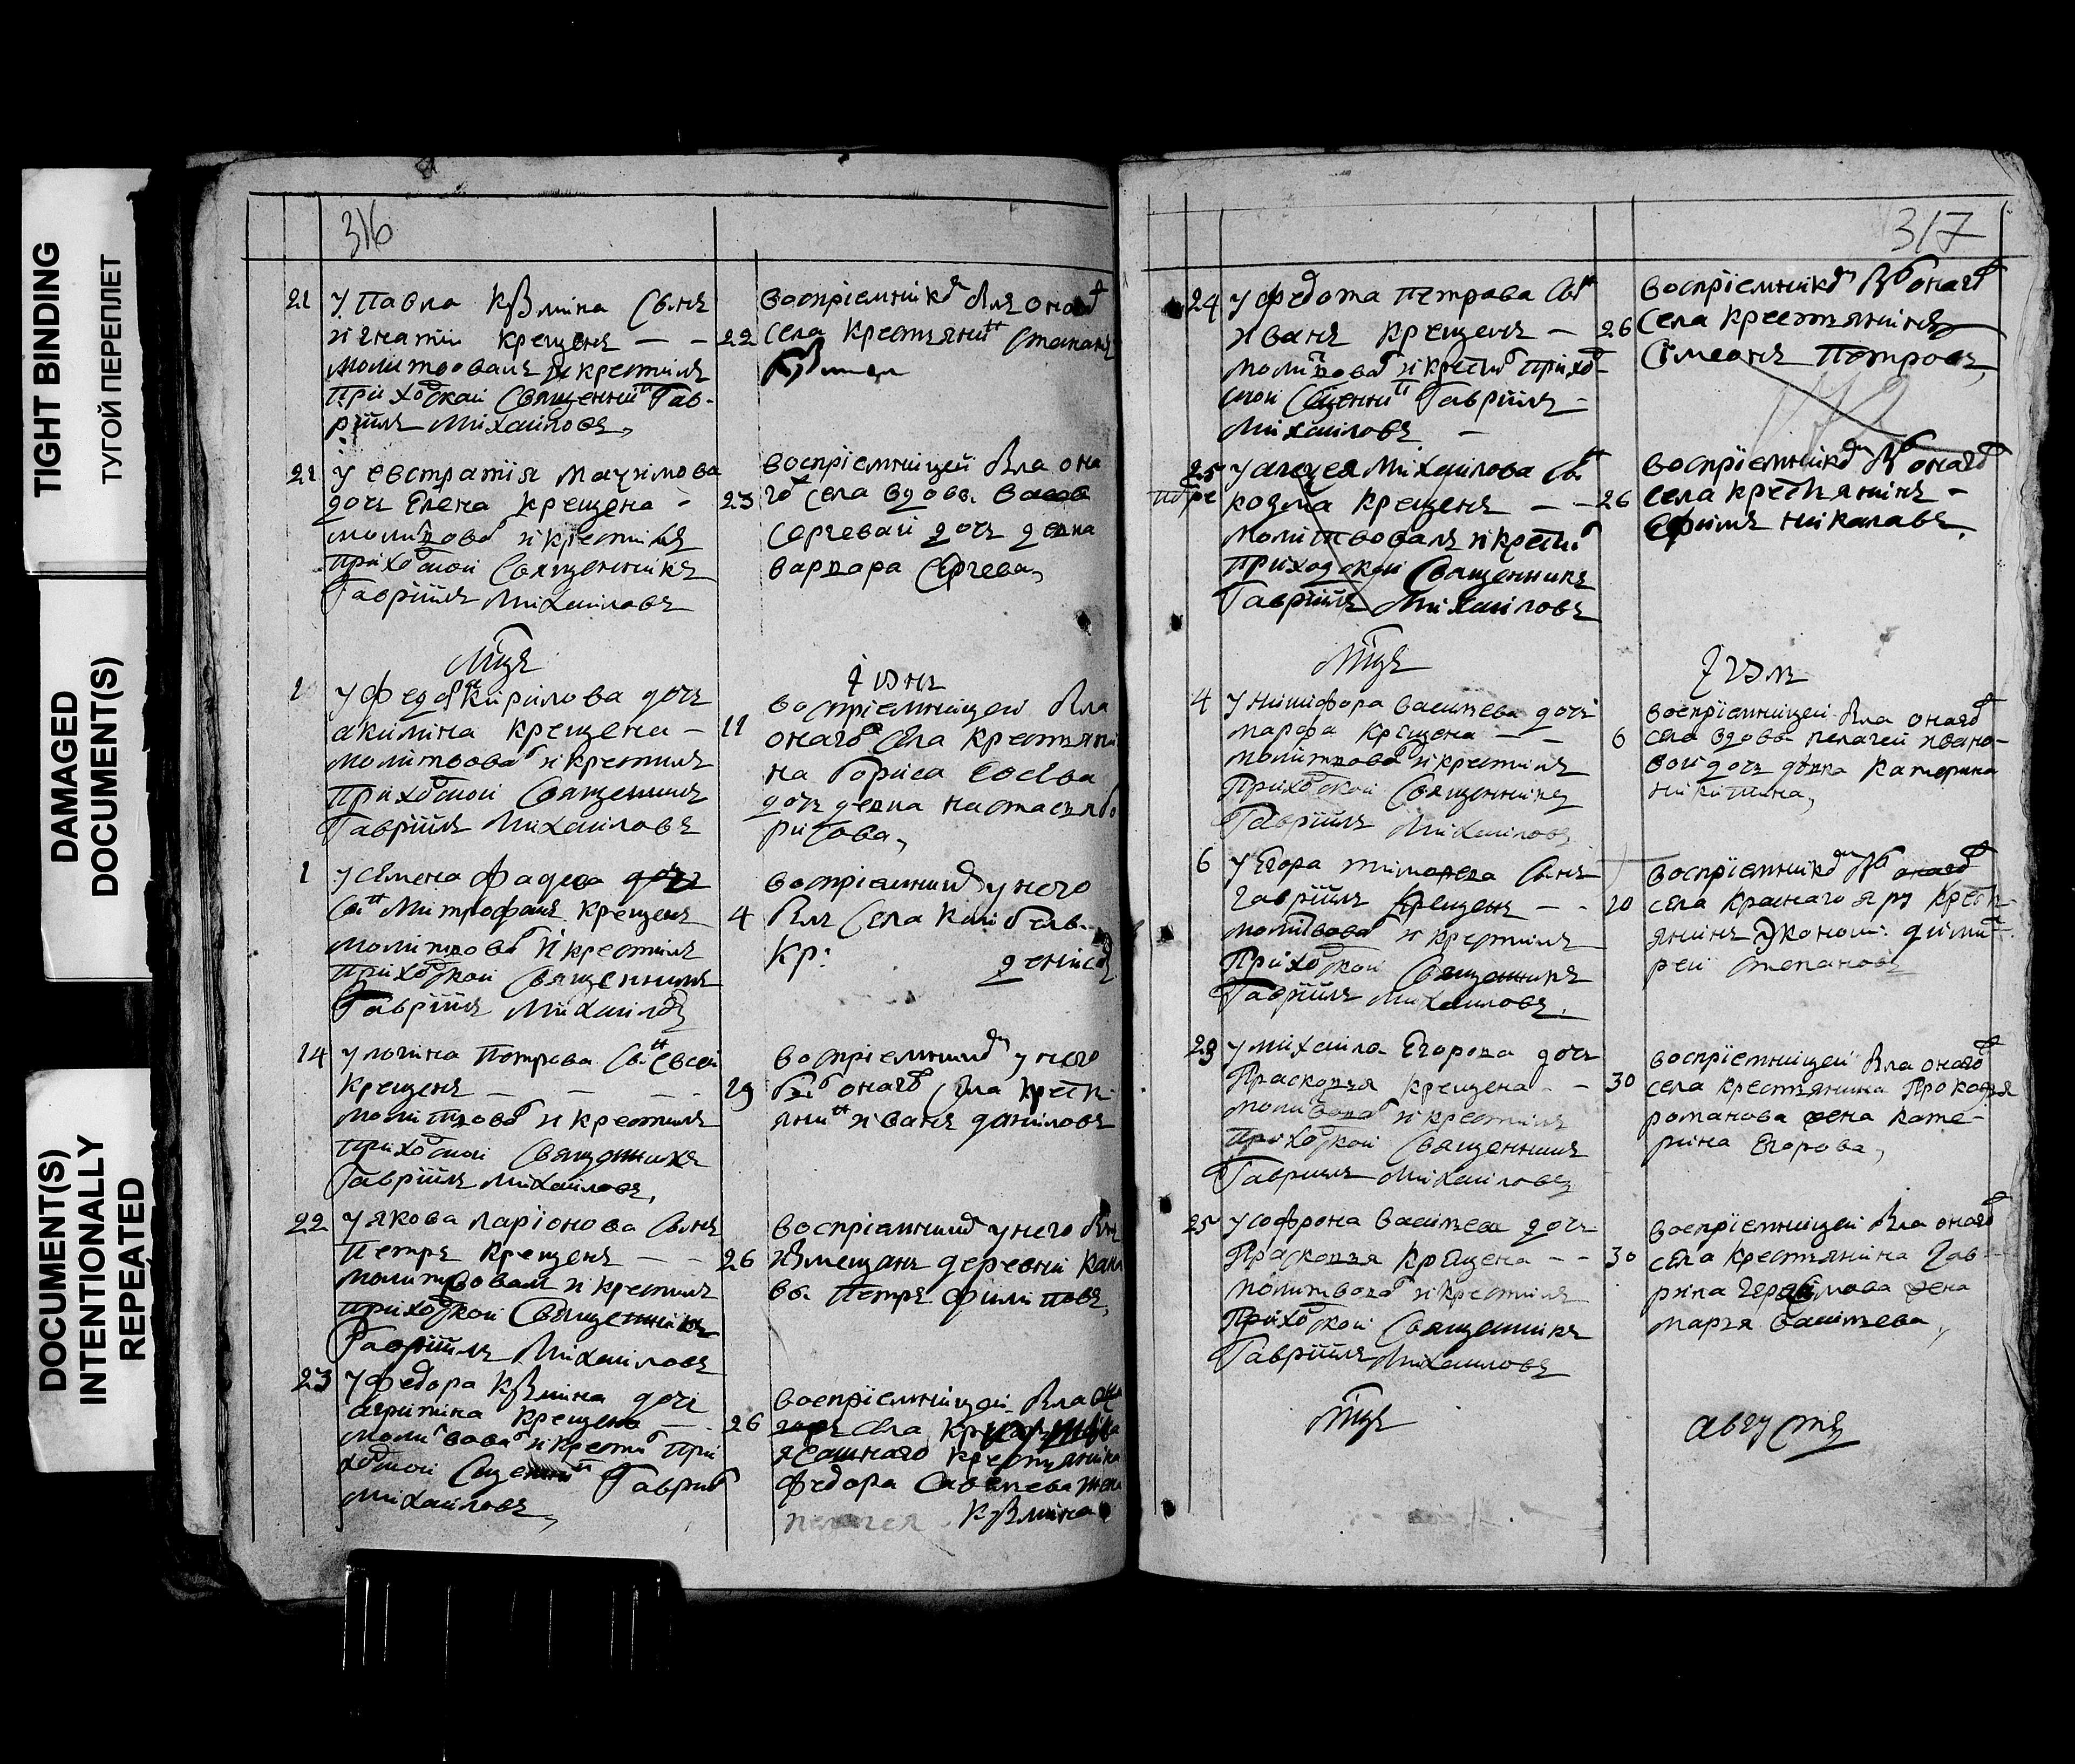 TIGHT BINDING
ТУГОЙ ПЕРЕПЛЕТ
DAMAGED
DOCUMENT(S)
DOCUMENT(S)
INTENTIONALLY
REPEATED
316
21 у Павла Кузмина сынъ
игнатий крещенъ — —
молитвовалъ и крестилъ
приходской священникъ Гав-
риилъ Михаиловъ,
22 восприемникомъ былъ онаго
села крестьянинъ степанъ
Кузмин
21 у евстратїя Маѯимова
дочь Елена крещена -
молитвовалъ и крестилъ
приходской священникъ
Гавриилъ Михаиловъ
23 воспрїемницей была она
го села вдовы
сергевой дочь девка
варвара Сергева,
Мцъ
Іюнь
1 у Федора Кирилова дочь
акилина крещена —
молитвовалъ и крестилъ
приходской священникъ
Гавриилъ Михаиловъ
11 воспрїемницей была
онаго села крестьяни
на бориса Евсева
дочь девка настасья бо
рисова,
1 у семена фадева дочь
сынъ Митрофанъ крещенъ
молитвовалъ и крестилъ
приходской священникъ
Гавриилъ Михаиловъ
4 воспрїемникомъ у него
былъ села
кр: денисъ
14 у логина Петрова сынъ евсей
крещенъ — — —
молитвовалъ и крестилъ
приходской священникъ
Гавриилъ Михаиловъ,
19 воспрїемникомъ у него
былъ онаго села кресть
янинъ иванъ даниловъ
22 у якова ларїонова сынъ
петръ крещенъ — —
молитвовалъ и крестилъ
приходской священникъ
Гавриилъ Михаиловъ
26 воспрїемникомъ у него былъ
помещикъ деревни
петръ филиповъ,
23 у федора Кузмина дочь
агрипина крещена —
молитвовалъ и крестилъ при
ходской священникъ Гаврилъ
Михаиловъ,
26 воспрїемницей была она
го села
ясашнаго крестьянина
федора савельева жена
пелагея Кузмина
317
24 у федота петрова сынъ
иванъ крещенъ —
молитвовалъ и крестилъ приход
ской священникъ Гавриилъ —
Михаиловъ —
26 воспрїемникомъ былъ онаго
села крестьянинъ
Симеонъ Петровъ,
25 у Михаилова сынъ
козма крещенъ — —
молитвовалъ и крестилъ
приходской священникъ
Гавриилъ Михаиловъ
26 воспрїемникомъ былъ онаго
села крестьянинъ —
ефимъ никалавъ.
Мцъ
Іюль
4 у никифора васильева дочь
марфа крещена — —
молитвовалъ и крестилъ
приходской священникъ
Гавриилъ Михаиловъ,
6 воспрїемницей была онаго
села вдовы пелагеи ивано-
вой дочь девка катерина
никитина,
6 у Егора тимофеева сынъ
гавриилъ крещенъ — -
молитвовалъ и крестилъ
приходской священникъ
Гавриилъ Михаиловъ.
10 воспрїемникомъ былъ онаго
села краснаго яру кресть
янинъ эконом: димит
рей степановъ
29 у михаила Егорова дочь
Прасковья крещена — -
молитвовалъ и крестилъ
приходской священникъ
Гавриилъ Михаиловъ
30 воспрїемницей была онаго
села крестьянина Прокофья
романова жена кате-
рина Егорова,
25 у софрона васильева дочь
Прасковья крещена — -
молитвовалъ и крестилъ
приходской священникъ
Гавриилъ Михаиловъ
30 воспрїемницей была онаго
села крестьянина Гав-
рила герасимова жена
марья васильева,
Мцъ
августъ